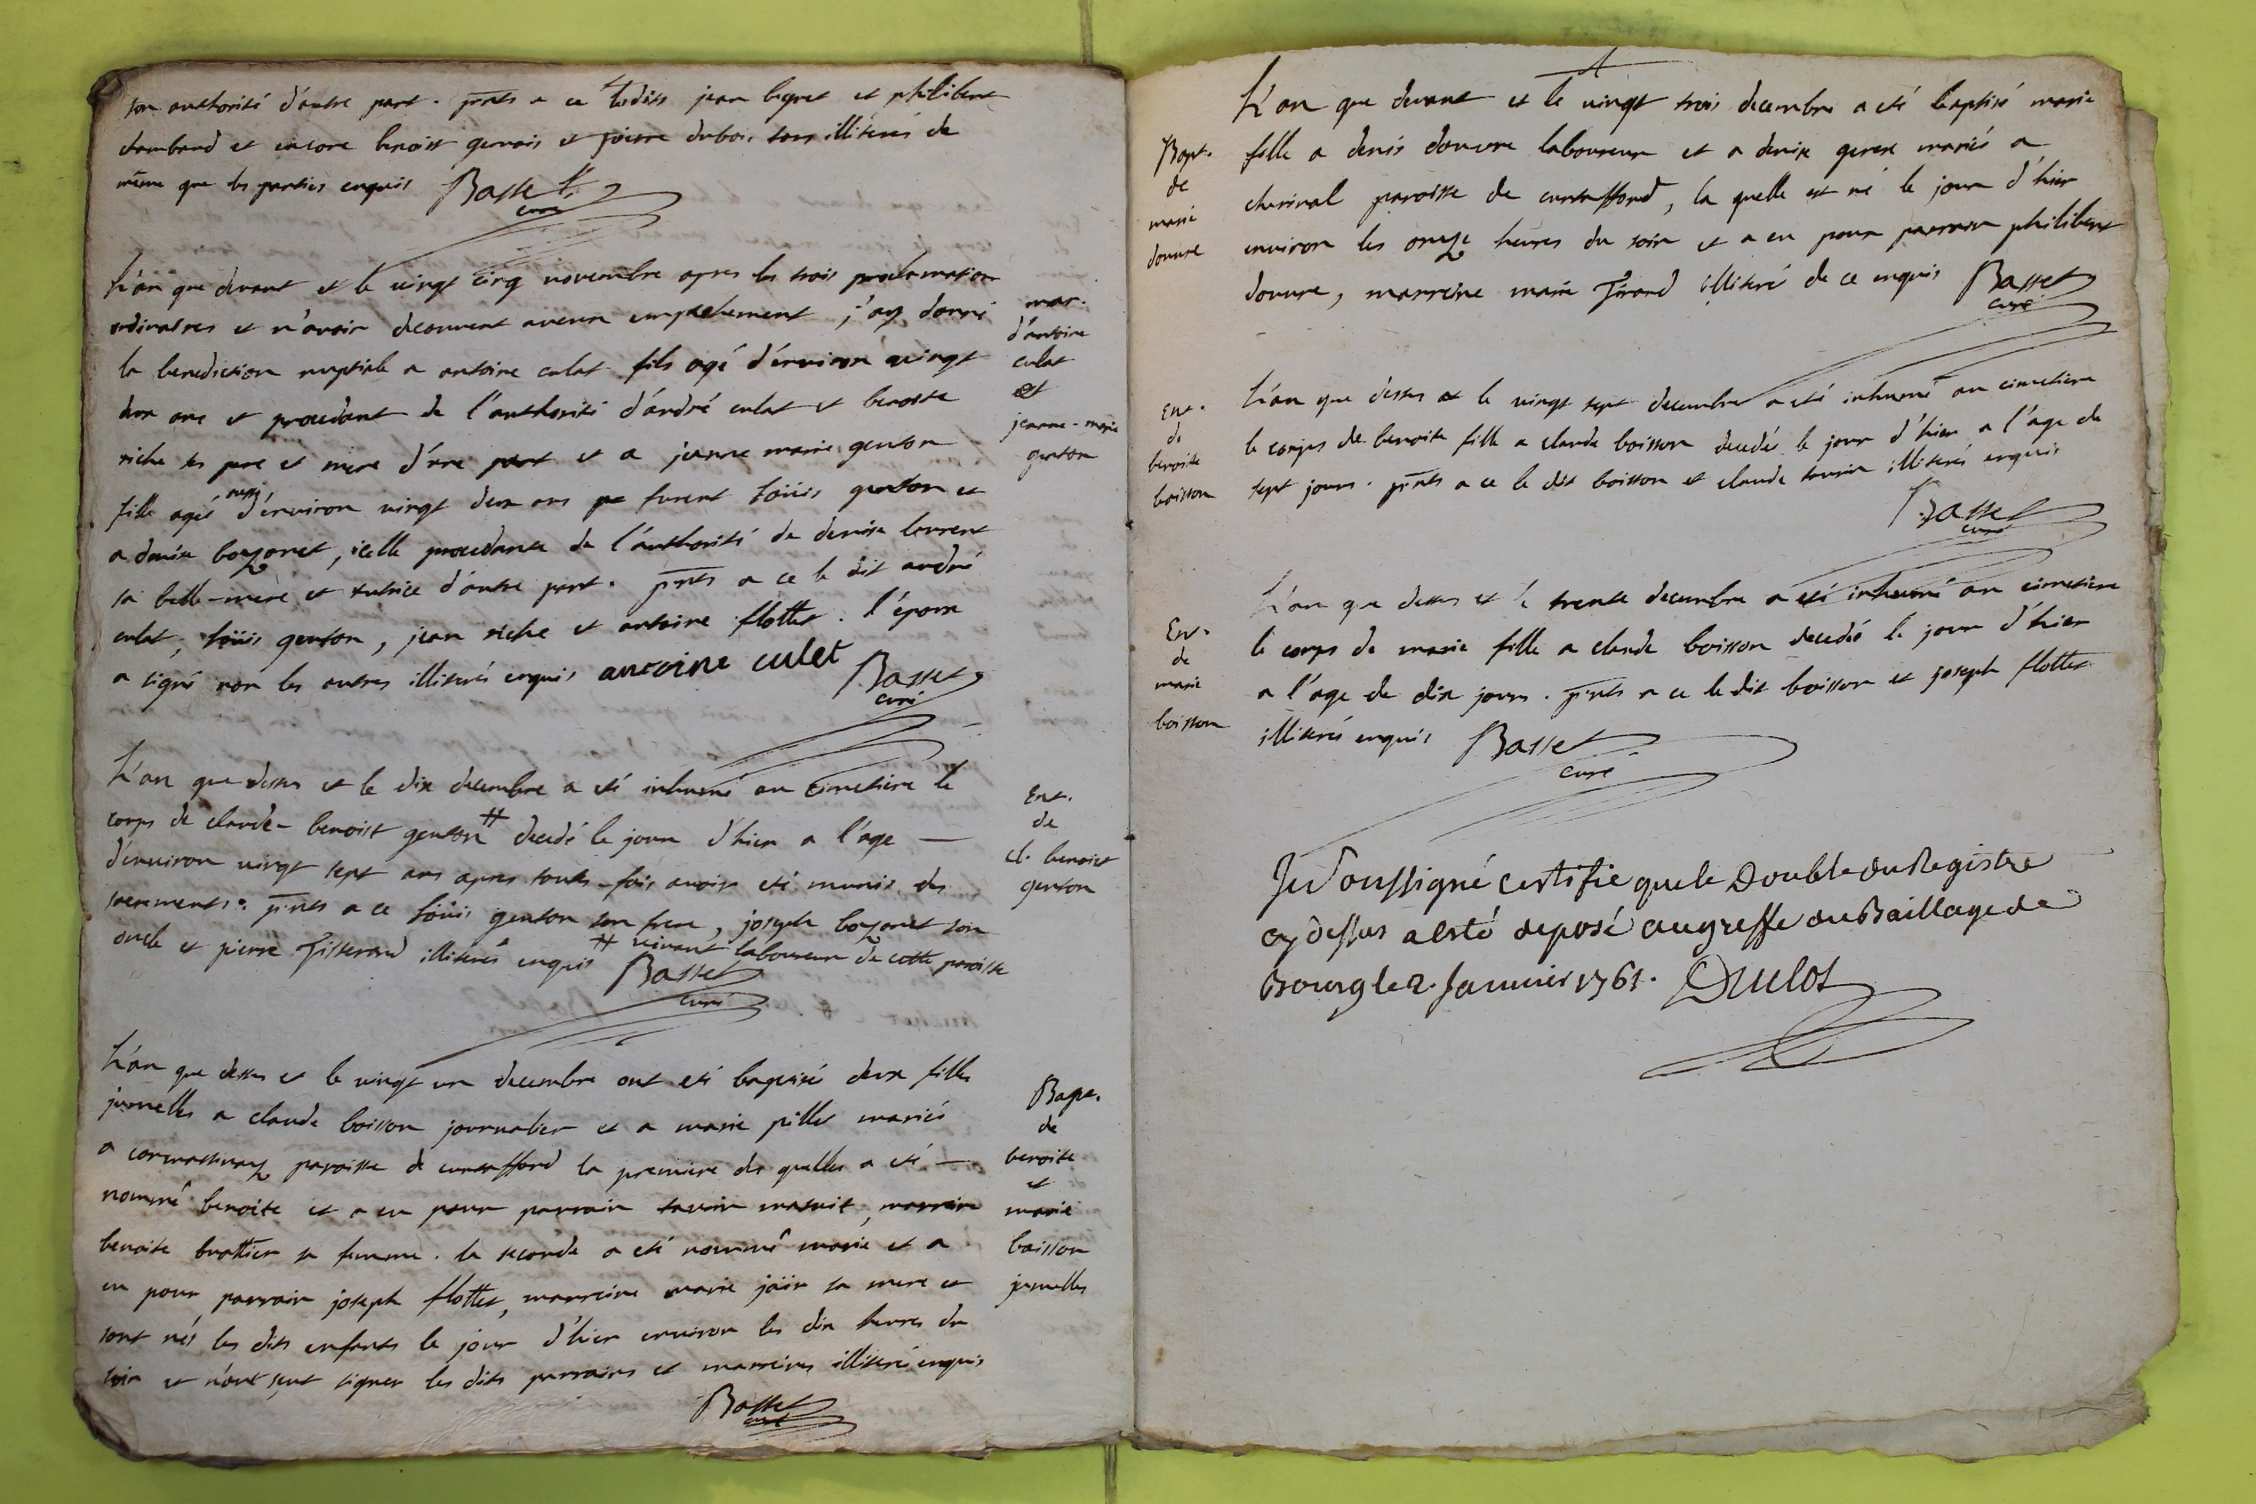 son authorité d'autre part. pnts a ce lesdits jean begret et philibert
chambard et encore benoist gervais et pierre dubois tous illiterés de
même que les parties enquis Basset
curé
L'an que devant et le vingt cinq novembre apres les trois proclamation
ordinaires et n'avoir decouvert aucun empechement j'ay donné
la benediction nuptiale a antoine culat fils agé d'environ vingt
deux ans et procedant de l'authorité d'andré culat et benoite
riche ses pere et mere d'une part et a jeanne marie genton
fille agée aussi d'environ vingt deux ans furent loüis genton et
a denise bozonet, icelle procedante de l'authorité de denise laurent
sa belle-mère et tutrice d'autre part. pnts a ce le dit andré
culat, loüis genton, jean riche et antoine flottet. l'époux
a signé non les autres illiterés enquis antoine culet Basset
curé
mar.
d'antoine
culat
et
jeanne-marie
genton
L'an que dessus et le dix decembre a eté inhumé au cimetiere le
corps de claude-benoist genton # decedé le jour d'hier a l'age —
d'environ vingt sept ans apres toutes-fois avoir eté munis des
sacrements. pnts a ce loüis genton son frere, joseph bozonet son
oncle et pierre Tisserand illiterés enquis # vivant laboureur de cette paroisse
Basset
curé
Ent.
de
cl. benoist
genton
L'an que dessus et le vingt un decembre ont eté baptisé deux filles
jumelles a claude boisson journalier et a marie pillet mariés
a cormasnaz paroisse de curtaffond la premiere des quelles a eté —
nommé benoite et a eu pour parrain savoir matrit, marraine
benoite brottier sa femme. la seconde a eté nommé marie et a
eu pour parrain joseph flottet, marreine marie jöin sa mere et
sont nés les dits enfants le jour d'hier environ les dix heures du
soir et n'ont sçut signer les dits parrains et marreines illiteré enquis
Basset
curé
Bapt.
de
benoite
et
marie
boisson
jumelles
L'an que devant et le vingt trois decembre a eté baptisé marie
fille a denis douvre laboureur et a denise gerex mariés a
cherinal paroisse de curtaffond, la quelle est né le jour d'hier
environ les onze heures du soir et a eu pour parrain philibert
douvre, marreine marie Tirand illiteré de ce enquis Basset
curé
Bapt.
de
marie
douvre
L'an que dessus et le vingt sept decembre a eté inhumé au cimetiere
le corps de benoite fille a claude boisson decedé le jour d'hier a l'age de
sept jours. pnts a ce le dit boisson et claude illiterés enquis
Basset
curé
Ent.
de
benoite
boisson
L'an que dessus et le trente decembre a eté inhumé au cimetiere
le corps de marie fille a claude boisson decedé le jour d'hier
a l'age de dix jours. pnts a ce le dit boisson et joseph flottet
illiterés enquis Basset
curé
Ent.
de
marie
boisson
Je Soussigné certifie que le Double du Registre
cy dessus a esté deposé au greffe du Baillage de
Bourg le 2. Janvier 1761. Dulot